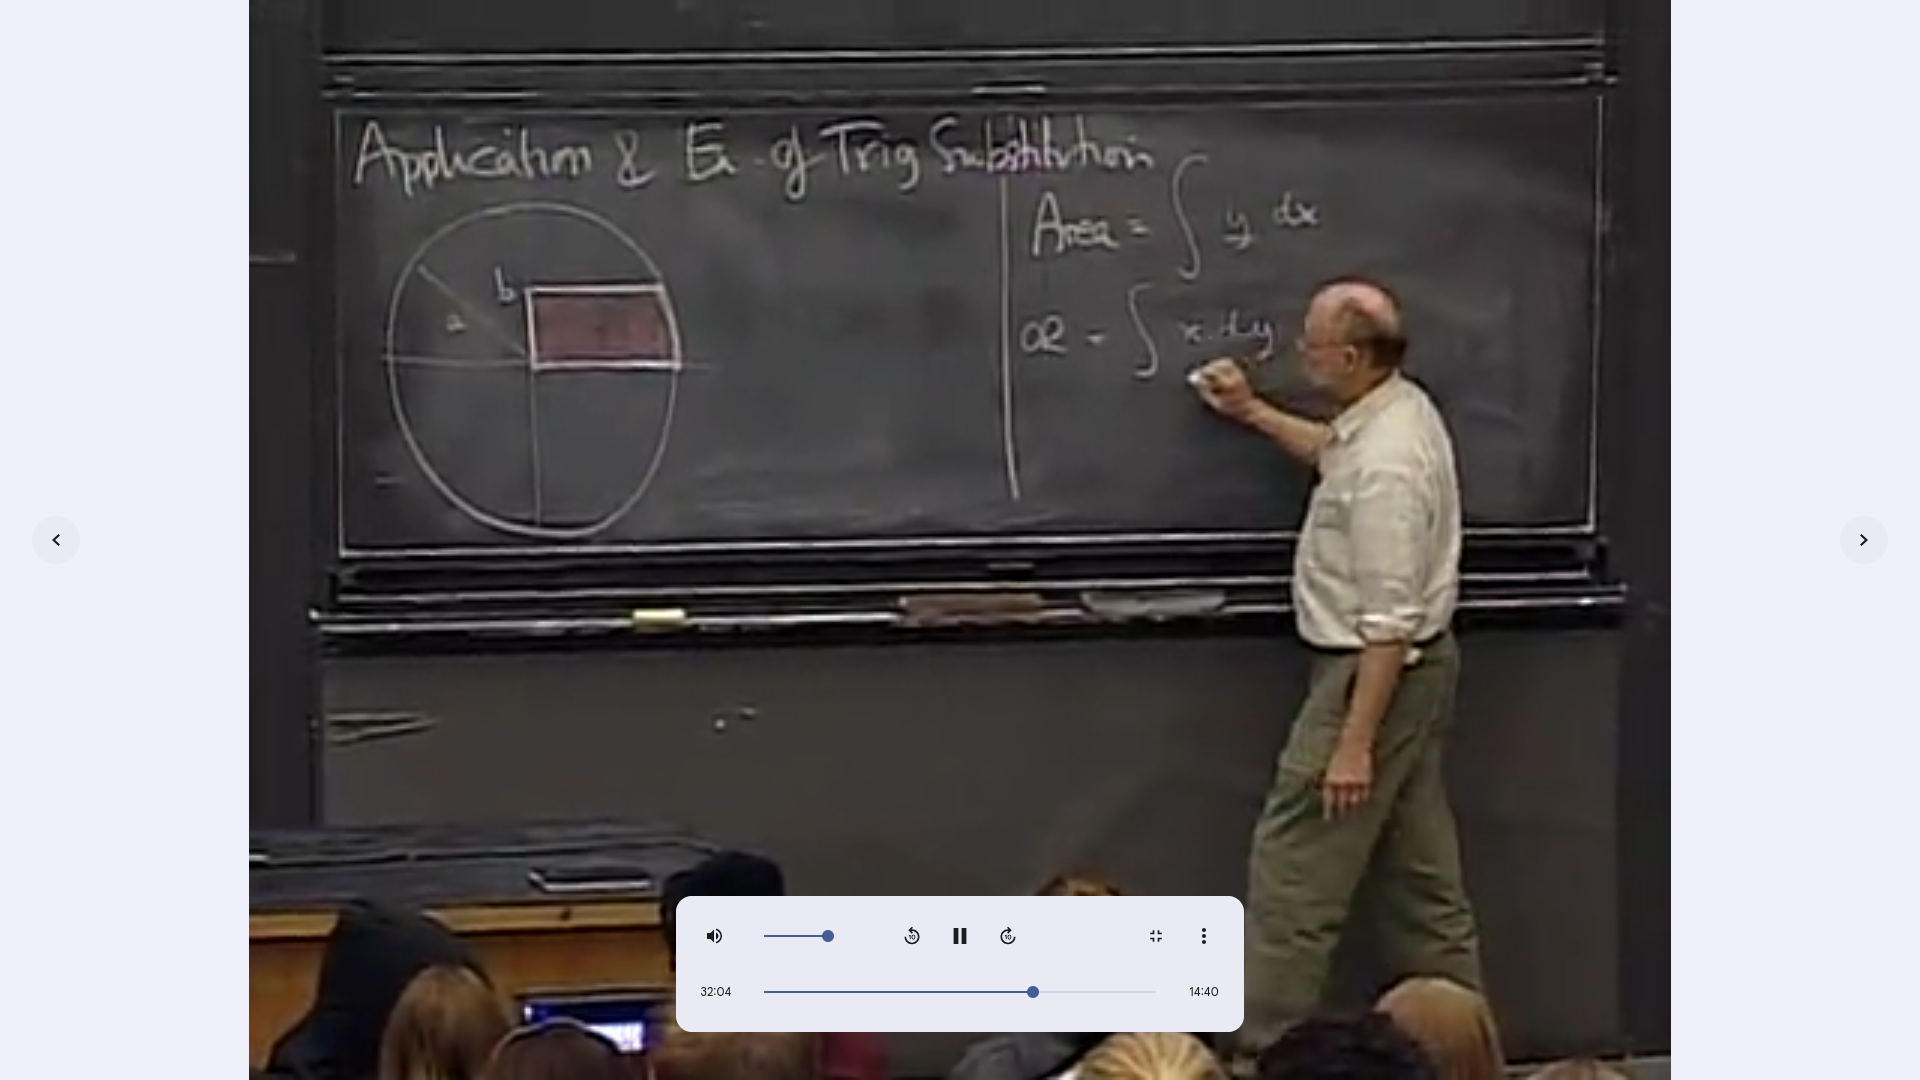 Application & Ex. of Trig Substitution
Area = ∫ y dx
b
a
OR = ∫ x dy
10
10
32:04
14:40